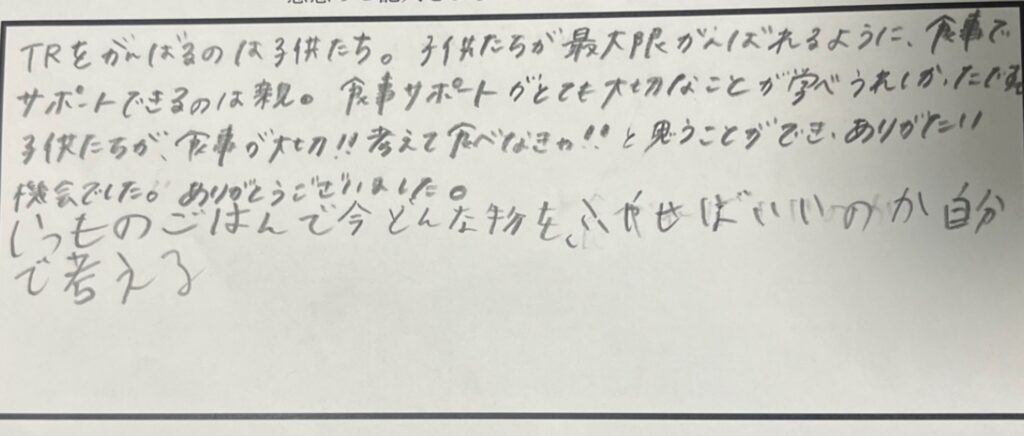 TRをがんばるのは子供たち。子供たちが最大限がんばれるように、食事で
サポートできるのは親。食事サポートがとても大切なことが学べうれしかったです。
子供たちが、食事が大切!!考えて食べなきゃ!!と思うことができ、ありがたい
機会でした。ありがとうございました。
いつものごはんで今どんな物を、ふやせばいいのか自分
で考える